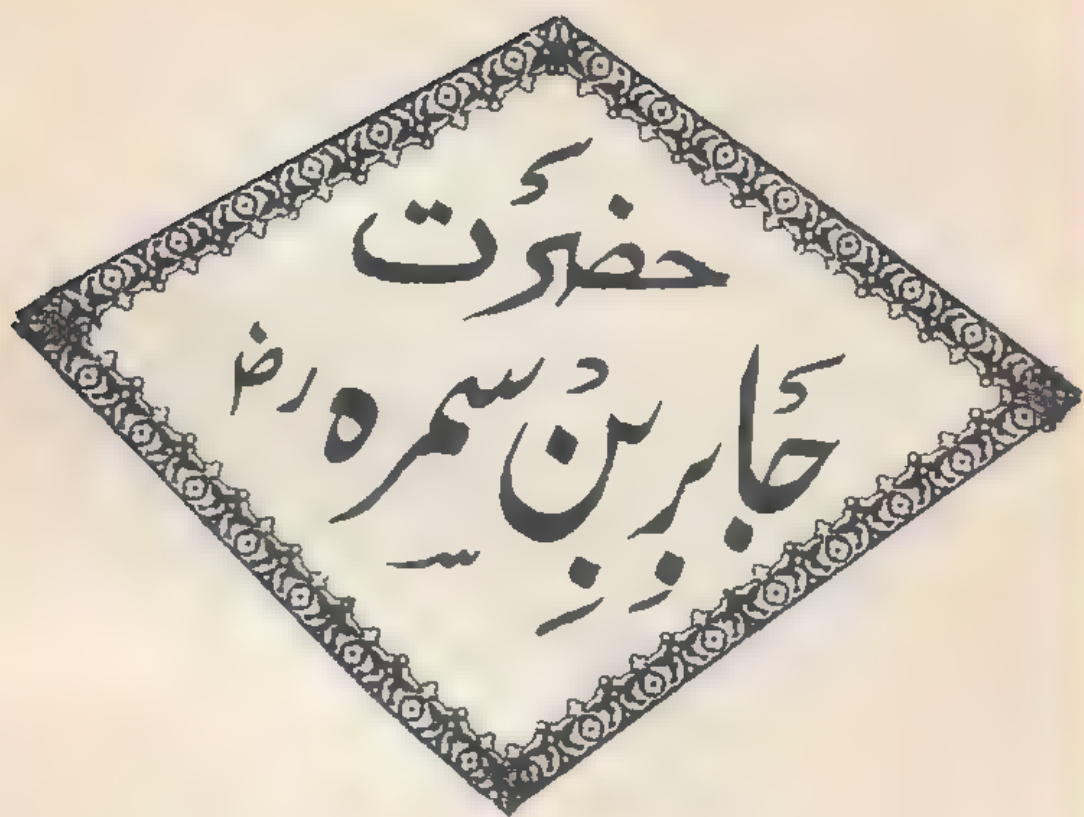 حضرت
جابر بن سمرہ رض